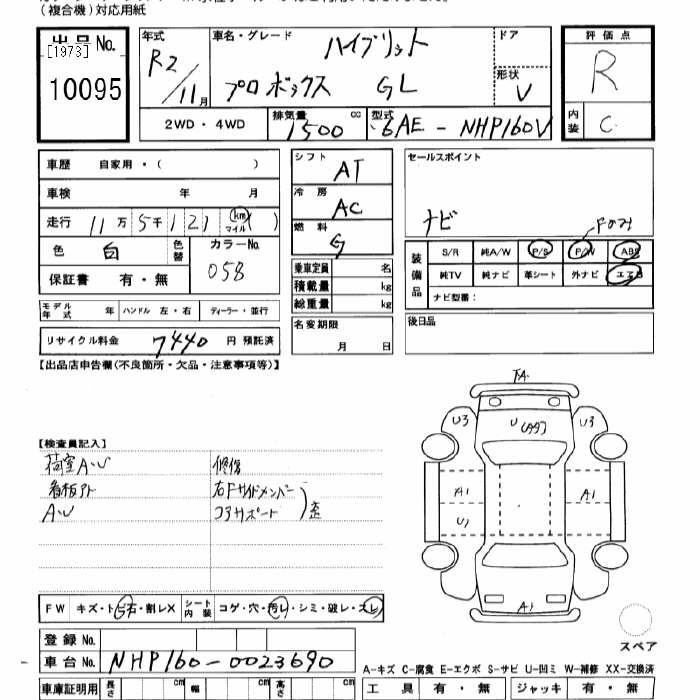 (複合機)対応用紙
出品No.
[1973]
10095
年式
R2/11月
車名・グレード
ハイブリット
プロボックス GL
ドア
形状
V
評価点
R
内装
C
2WD・4WD
排気量
1500 cc
型式
6AE-NHP160V
車歴 自家用・( )
車検 年 月
走行 11万5千121 (km マイル)( )
色 白 色替
カラーNo.
058
保証書 有・無
シフト
AT
冷房
AC
燃料
G
乗車定員 名
積載量 kg
総重量 kg
セールスポイント
ナビ
装備品
S/R 純A/W P/S P/W ABS
純TV 純ナビ 革シート 外ナビ エアB
ナビ型番:
モデル年式 年 ハンドル 左・右 ディーラー・並行
リサイクル料金 7440 円 預託済
名変期限
月 日
後日品
【出品店申告欄(不良箇所・欠品・注意事項等)】
【検査員記入】
荷室A・U
看板アト
A・U
修復
右Fサイドメンバー
コアサポート
歪
FA
U3
U
U3
A1
A1
A1
FW キズ・トビ石・割レX
シート内装 コゲ・穴・汚レ・シミ・破レ・スレ
スペア
登録No.
車台No. NHP160-0023690
A-キズ C-腐食 E-エクボ S-サビ U-凹ミ W-補修 XX-交換済
車庫証明用 長さ cm 幅 cm 高さ cm
工具 有・無 ジャッキ 有・無